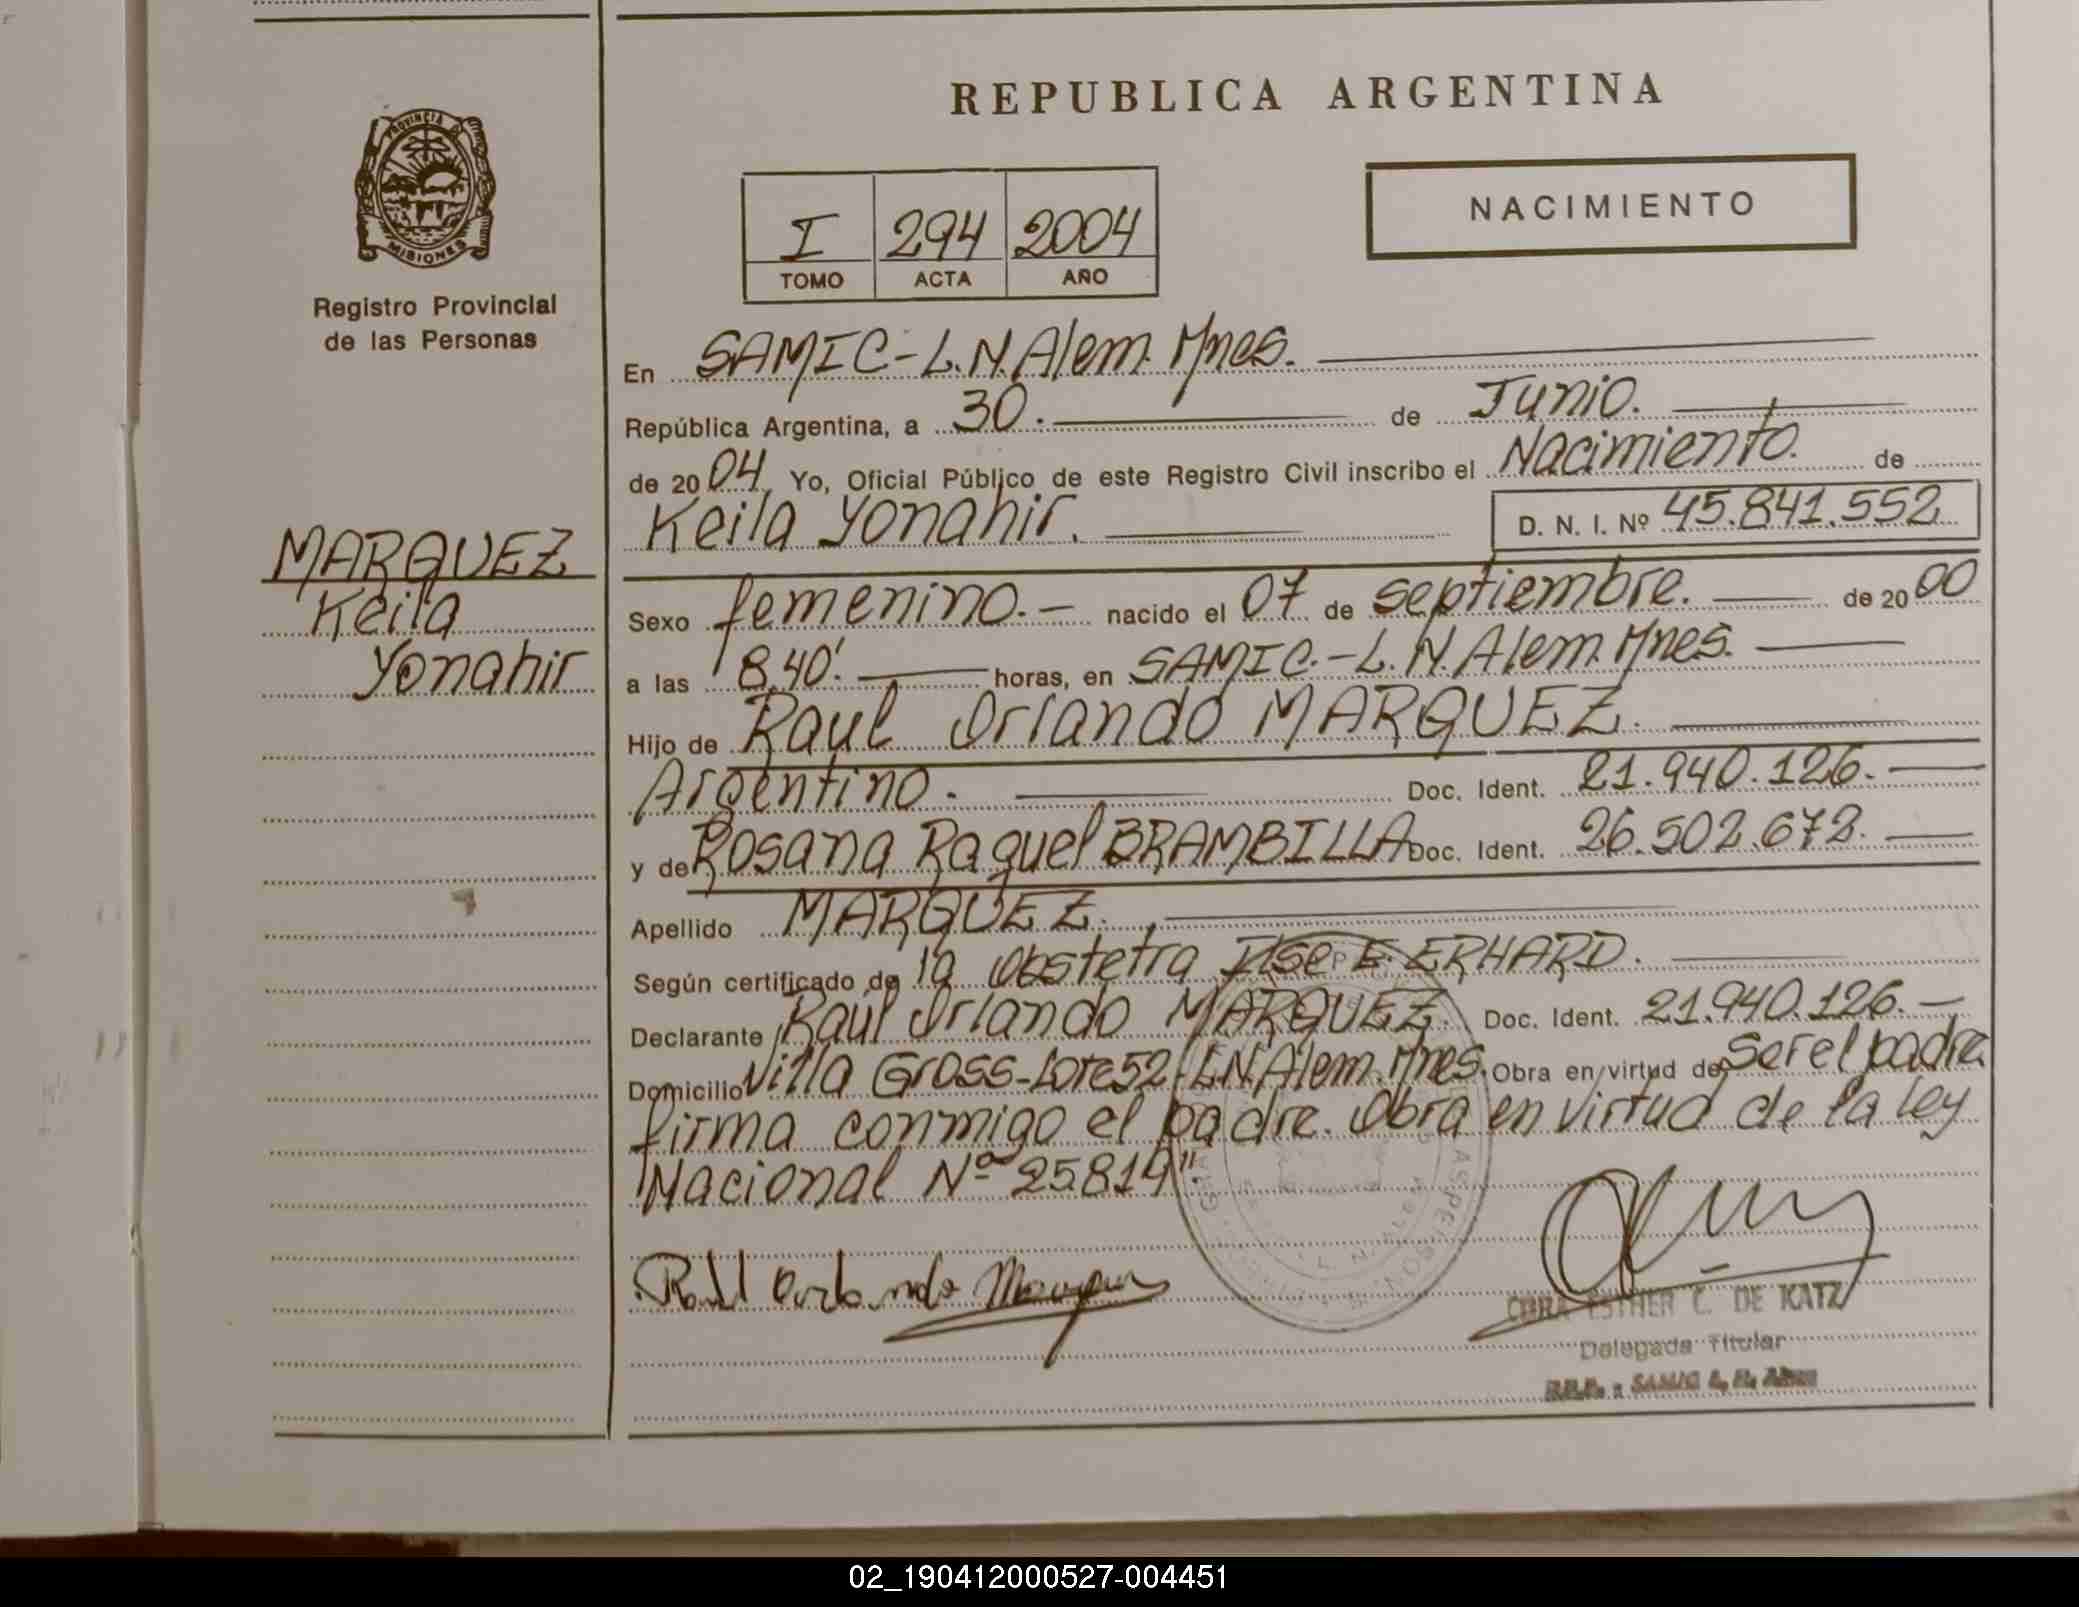 REPUBLICA ARGENTINA
PROVINCIA DE
MISIONES
Registro Provincial
de las Personas
MARQUEZ
Keila
Yonahir
I 294 2004
TOMO ACTA AÑO
NACIMIENTO
En SAMIC-L.N.Alem. Mnes.
República Argentina, a 30. de Junio.
de 2004 Yo, Oficial Público de este Registro Civil inscribo el Nacimiento. de
Keila Yonahir. D. N. I. Nº 45.841.552
Sexo femenino.- nacido el 07 de septiembre. de 2000
a las 8,40'. horas, en SAMIC.-L.N.Alem.Mnes.
Hijo de Raul Orlando MARQUEZ.
Argentino. Doc. Ident. 21.940.126.
y de Rosana Raquel BRAMBILLA Doc. Ident. 26.502.672.
Apellido MARQUEZ.
Según certificado de la Obstetra Ilse E. ERHARD.
Declarante Raúl Orlando MARQUEZ. Doc. Ident. 21.940.126.-
Domicilio Villa Gross-Lote 52-L.N.Alem.Mnes. Obra en virtud de Ser el padre
firma conmigo el padre. Obra en virtud de la ley
Nacional Nº 25819".
Raul Orlando Marquez
CORA ESTHER C. DE KATZ
Delegada Titular
R.P.P. - SAMIC L. N. Alem
02_190412000527-004451